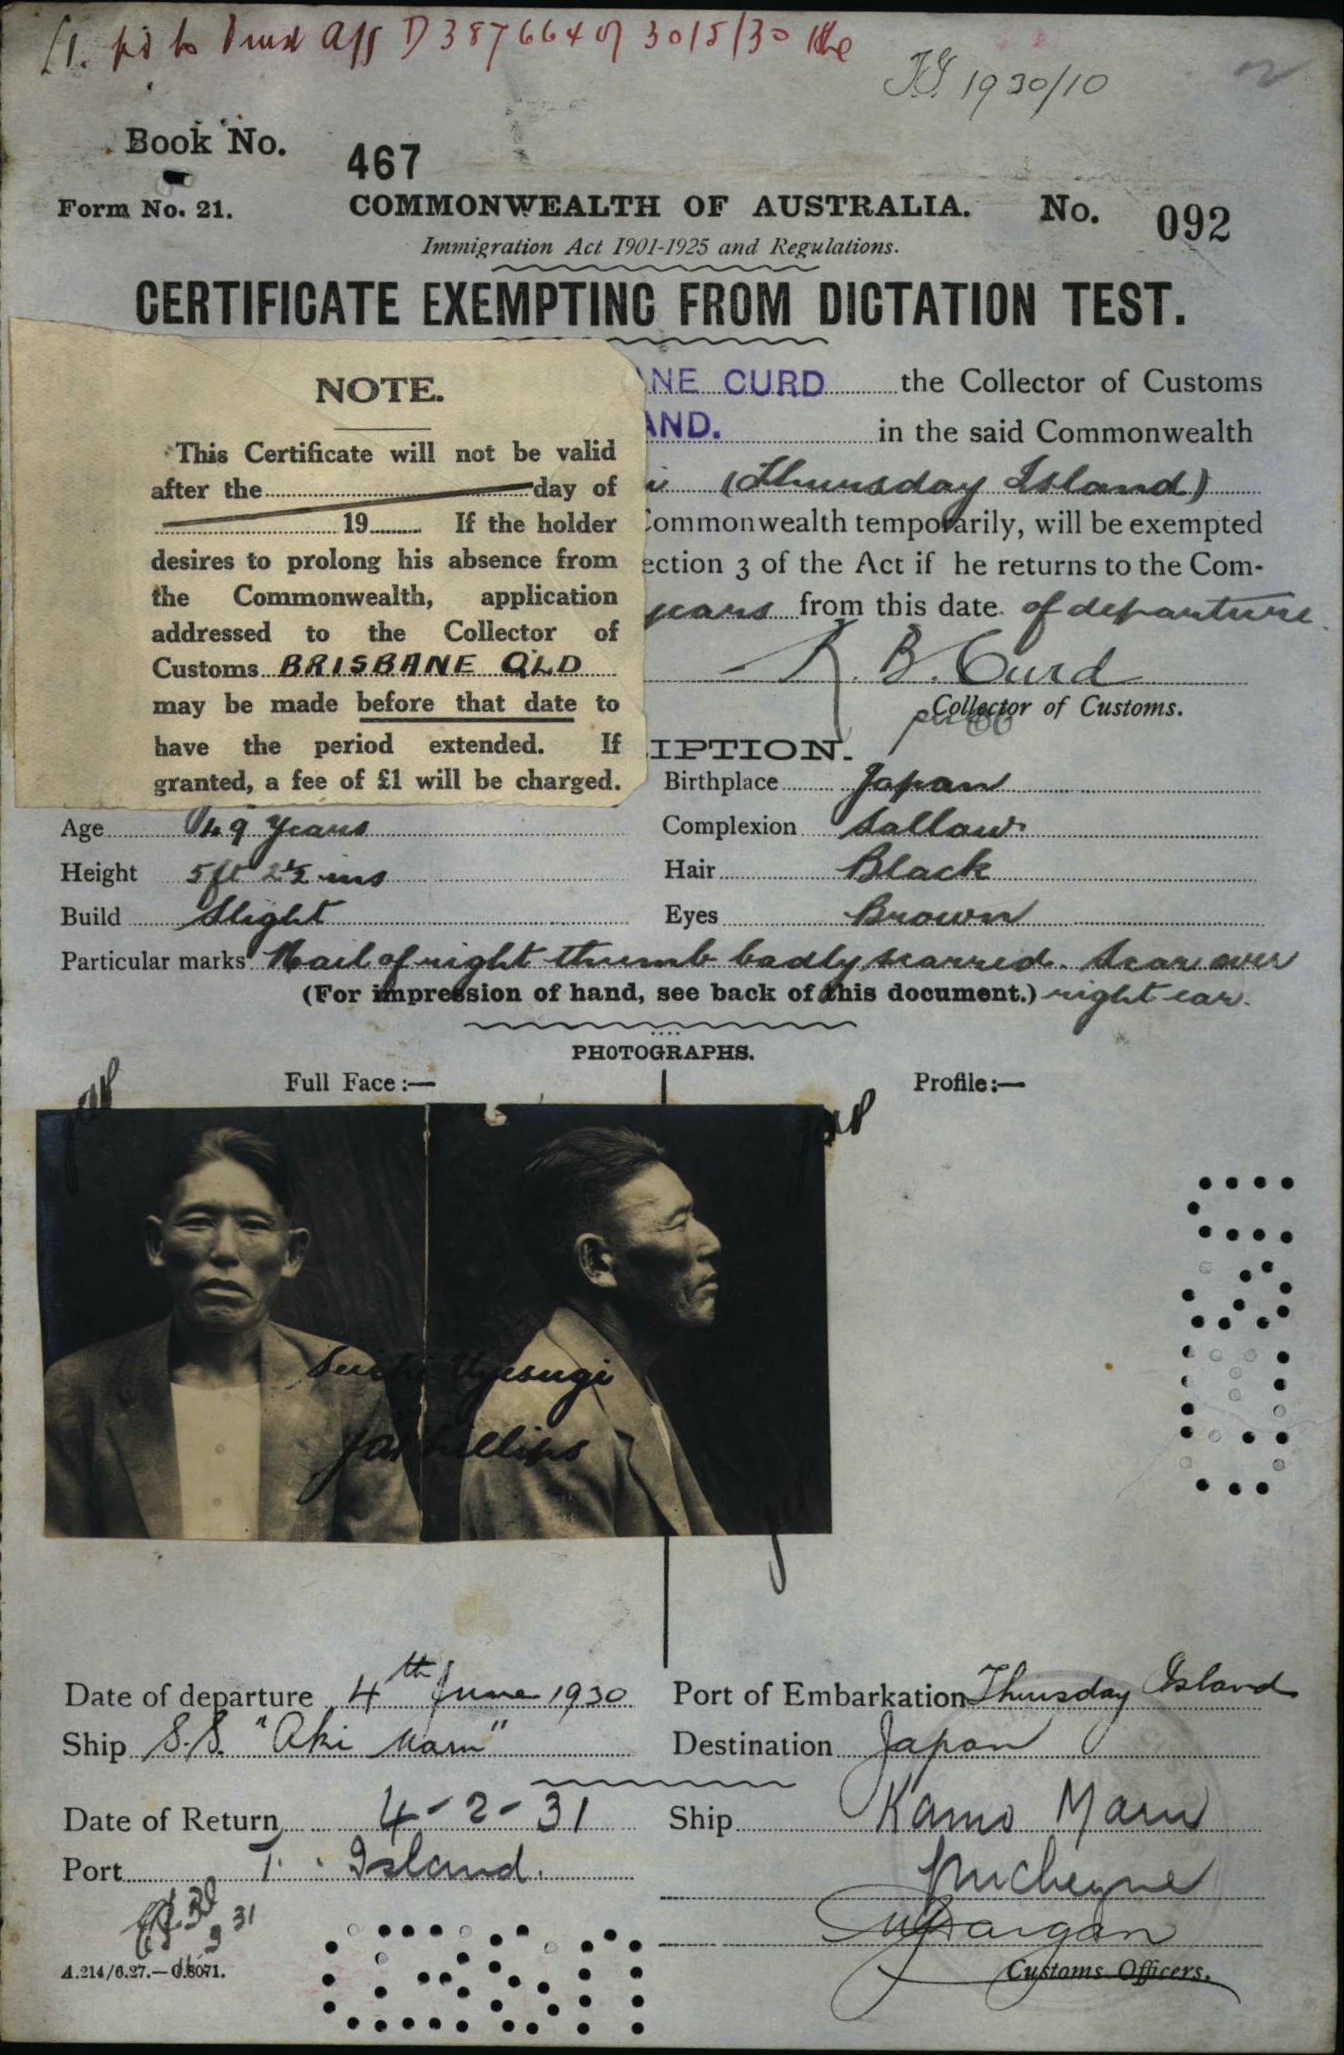 £1. pd to Trust A/ff D 387664 of 30/5/30
T.I. 1930/10
Book No. 467
Form No. 21. COMMONWEALTH OF AUSTRALIA. No. 092
Immigration Act 1901-1925 and Regulations.
CERTIFICATE EXEMPTING FROM DICTATION TEST.
NOTE.
This Certificate will not be valid
after the day of
19 If the holder
desires to prolong his absence from
the Commonwealth, application
addressed to the Collector of
Customs BRISBANE QLD
may be made before that date to
have the period extended. If
granted, a fee of £1 will be charged.
ANE CURD the Collector of Customs
AND. in the said Commonwealth
i (Thursday Island)
Commonwealth temporarily, will be exempted
ection 3 of the Act if he returns to the Com-
years from this date of departure
R. B. Curd
Collector of Customs.
IPTION.
Birthplace Japan
Age 49 Years Complexion Sallow
Height 5ft 2½ ins Hair Black
Build Slight Eyes Brown
Particular marks Nail of right thumb badly scarred. Scar over
(For impression of hand, see back of this document.) right ear.
PHOTOGRAPHS.
Full Face:— Profile:—
Uyesugi
Phillips
Date of departure 4th June 1930 Port of Embarkation Thursday Island
Ship S.S. "Aki Maru" Destination Japan
Date of Return 4-2-31 Ship Kamo Maru
Port T. Island.
31
Customs Officers.
A.214/6.27.—C.8071.